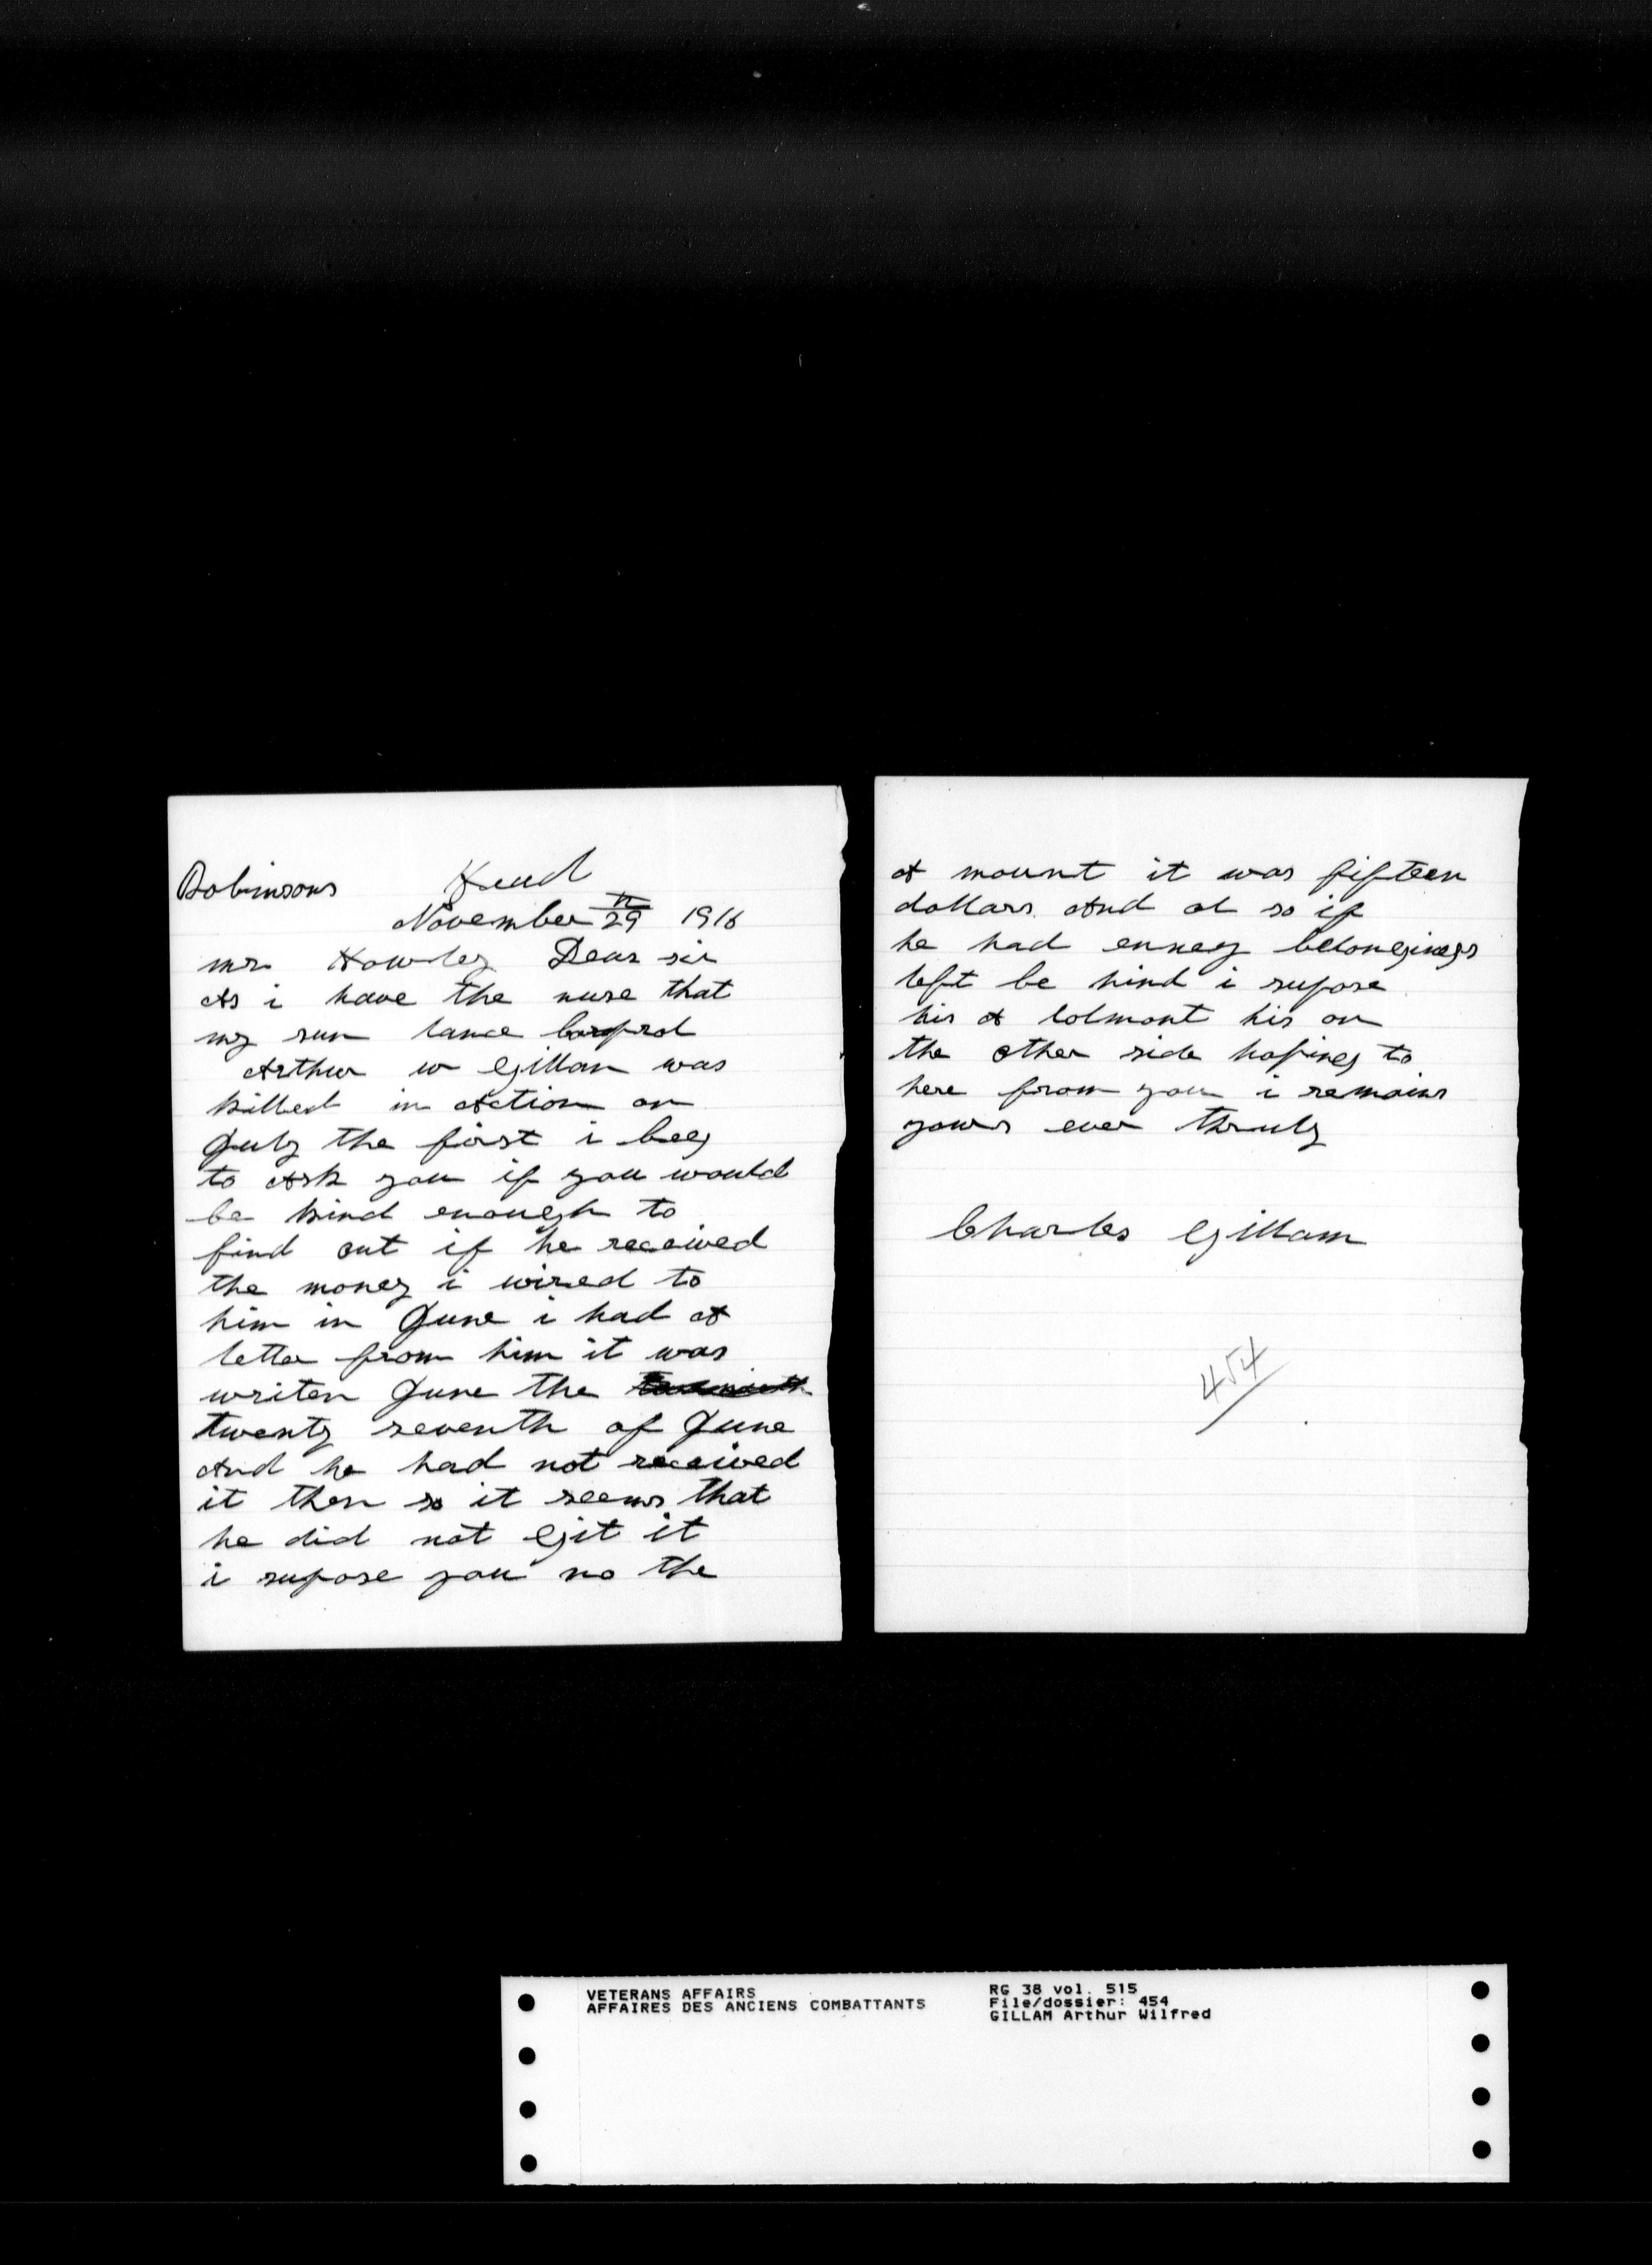 Robinsons Head
November 29th 1916
mr Howley Dear sir
As i have the nuse that
my sun lance Corprol
Arthur w Gillam was
killed in Action on
July the first i beg
to Ask you if you would
be kind enough to
find out if he received
the money i wired to
him in June i had A
letter from him it was
writen June the
twenty seventh of June
And he had not received
it then so it seems that
he did not Git it
i supose you no the
A mount it was fifteen
dollars And al so if
he had enney belongings
left be hind i supose
his A lolmont his on
the other side hoping to
here from you i remains
yours ever thruly
Charles Gillam
454
VETERANS AFFAIRS
AFFAIRES DES ANCIENS COMBATTANTS
RG 38 vol. 515
File/dossier: 454
GILLAM Arthur Wilfred